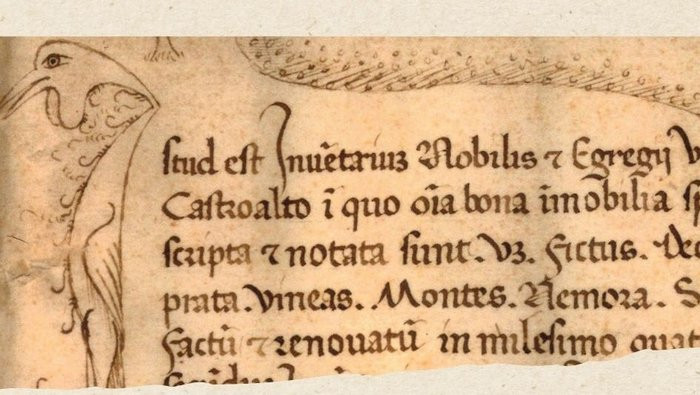 stud est Inuētariuʒ Nobilis ⁊ Egregij
Castroalto ī quo oīa bona īmobilia
scripta ⁊ notata sunt. Vʒ. Fictus.
prata. vineas. Montes. Nemora.
Factū ⁊ renouatū in milesimo